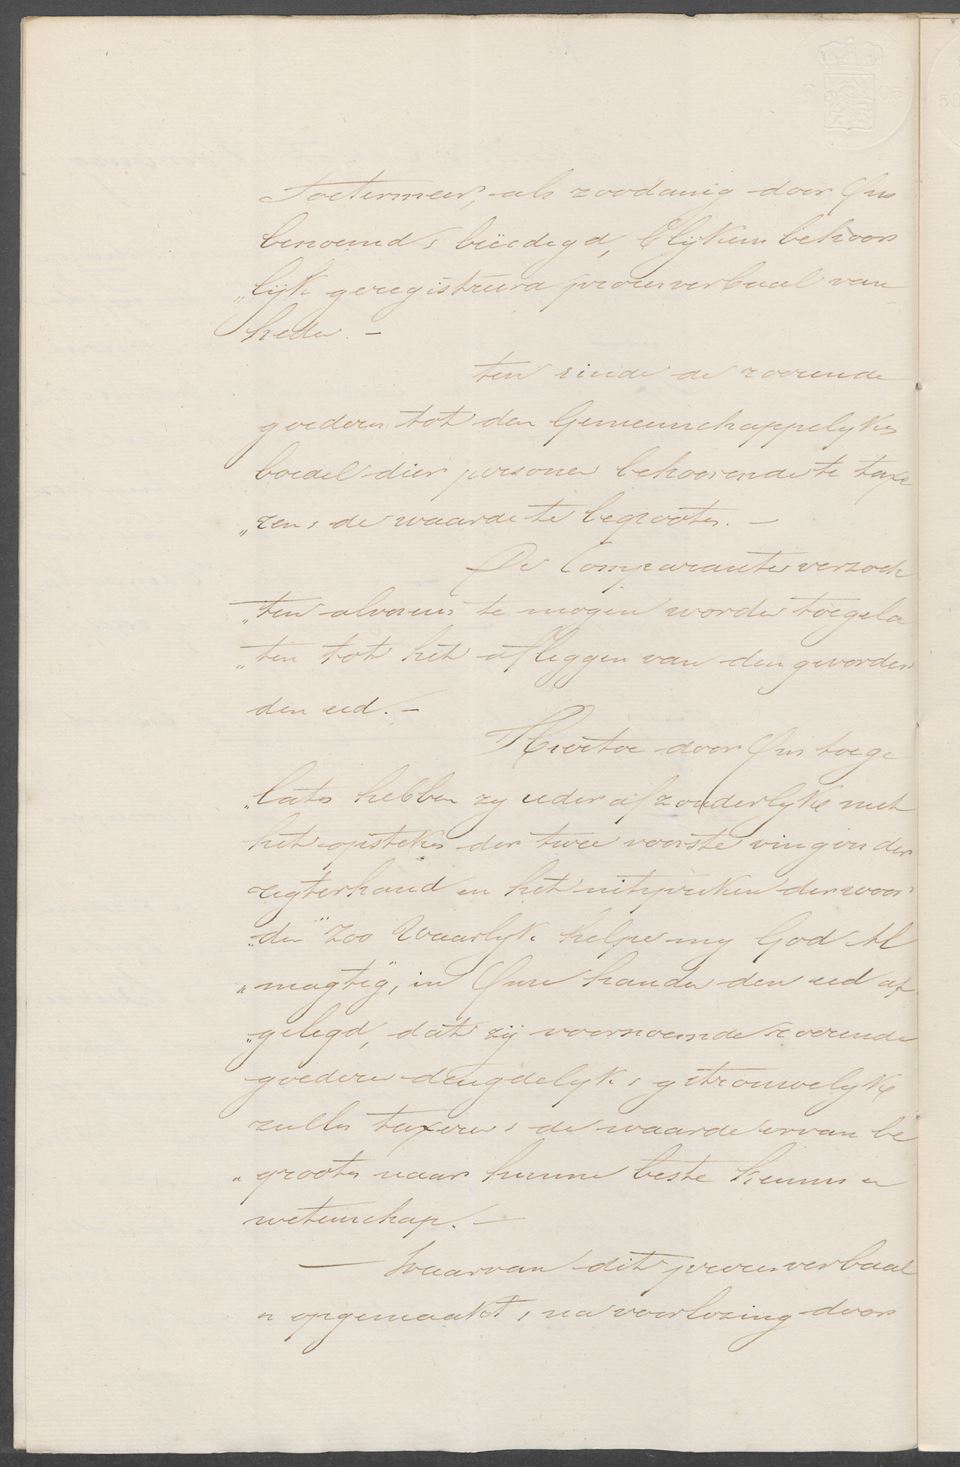 Soetermeer, als zoodanig door Ons
benoemd & beëedigd, blijkens behoor
„lijk geregistreerd procesverbaal van
heden. –
ten einde de roerende
goederen tot den Gemeenschappelyken
boedel dier personen behoorende te taxe
„ren & de waarde te begrooten. –
De Comparanten verzoch
„ten alvorens te mogen worden toegela
„ten tot het afleggen van den gevorder
den eed. –
Hiertoe door Ons toege
„laten hebben zy ieder afzonderlyk met
het opsteken der twee voorste vingers der
regterhand en het uitspreken der woor
„den "Zoo Waarlyk helpe my God Al
„magtig", in Onze handen den eed af
„gelegd, dat zij voornoemde roerende
goederen deugdelyk & getrouwelyk
zullen taxeren & de waarde ervan be
„grooten naar hunne beste kennis en
wetenschap. –
— Waarvan dit procesverbaal
is opgemaakt & na voorlezing door